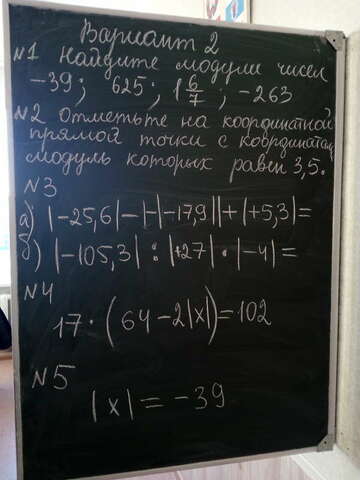 Вариант 2
№1 Найдите модули чисел
-39; 625; 1 6/7; -263
№2 Отметьте на координатной
прямой точки с координатами,
модуль которых равен 3,5.
№3
а) |-25,6|-|-|-17,9||+|+5,3|=
б) |-105,3| : |+27| · |-4| =
№4
17·(64-2|x|)=102
№5
|x| = -39